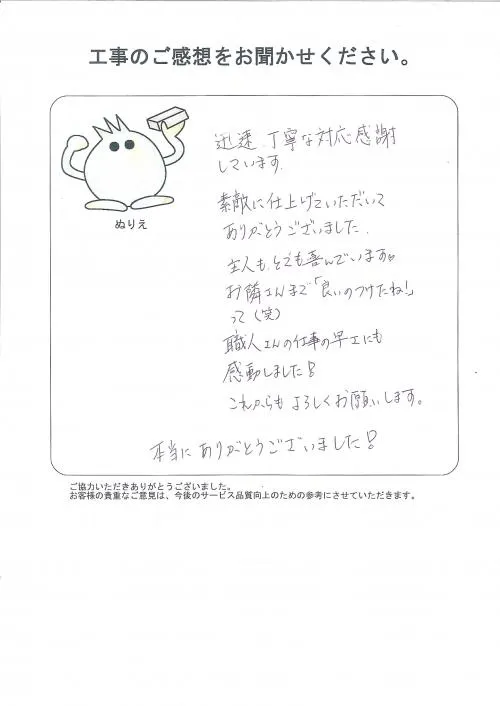 工事のご感想をお聞かせください。
ぬりえ
迅速、丁寧な対応感謝
しています。
素敵に仕上げていただいて
ありがとうございました。
主人も、とても喜んでいます。
お隣さんまで「良いのつけたね!」
って(笑)
職人さんの仕事の早さにも
感動しました!
これからもよろしくお願いします。
本当にありがとうございました!
ご協力いただきありがとうございました。
お客様の貴重なご意見は、今後のサービス品質向上のための参考にさせていただきます。